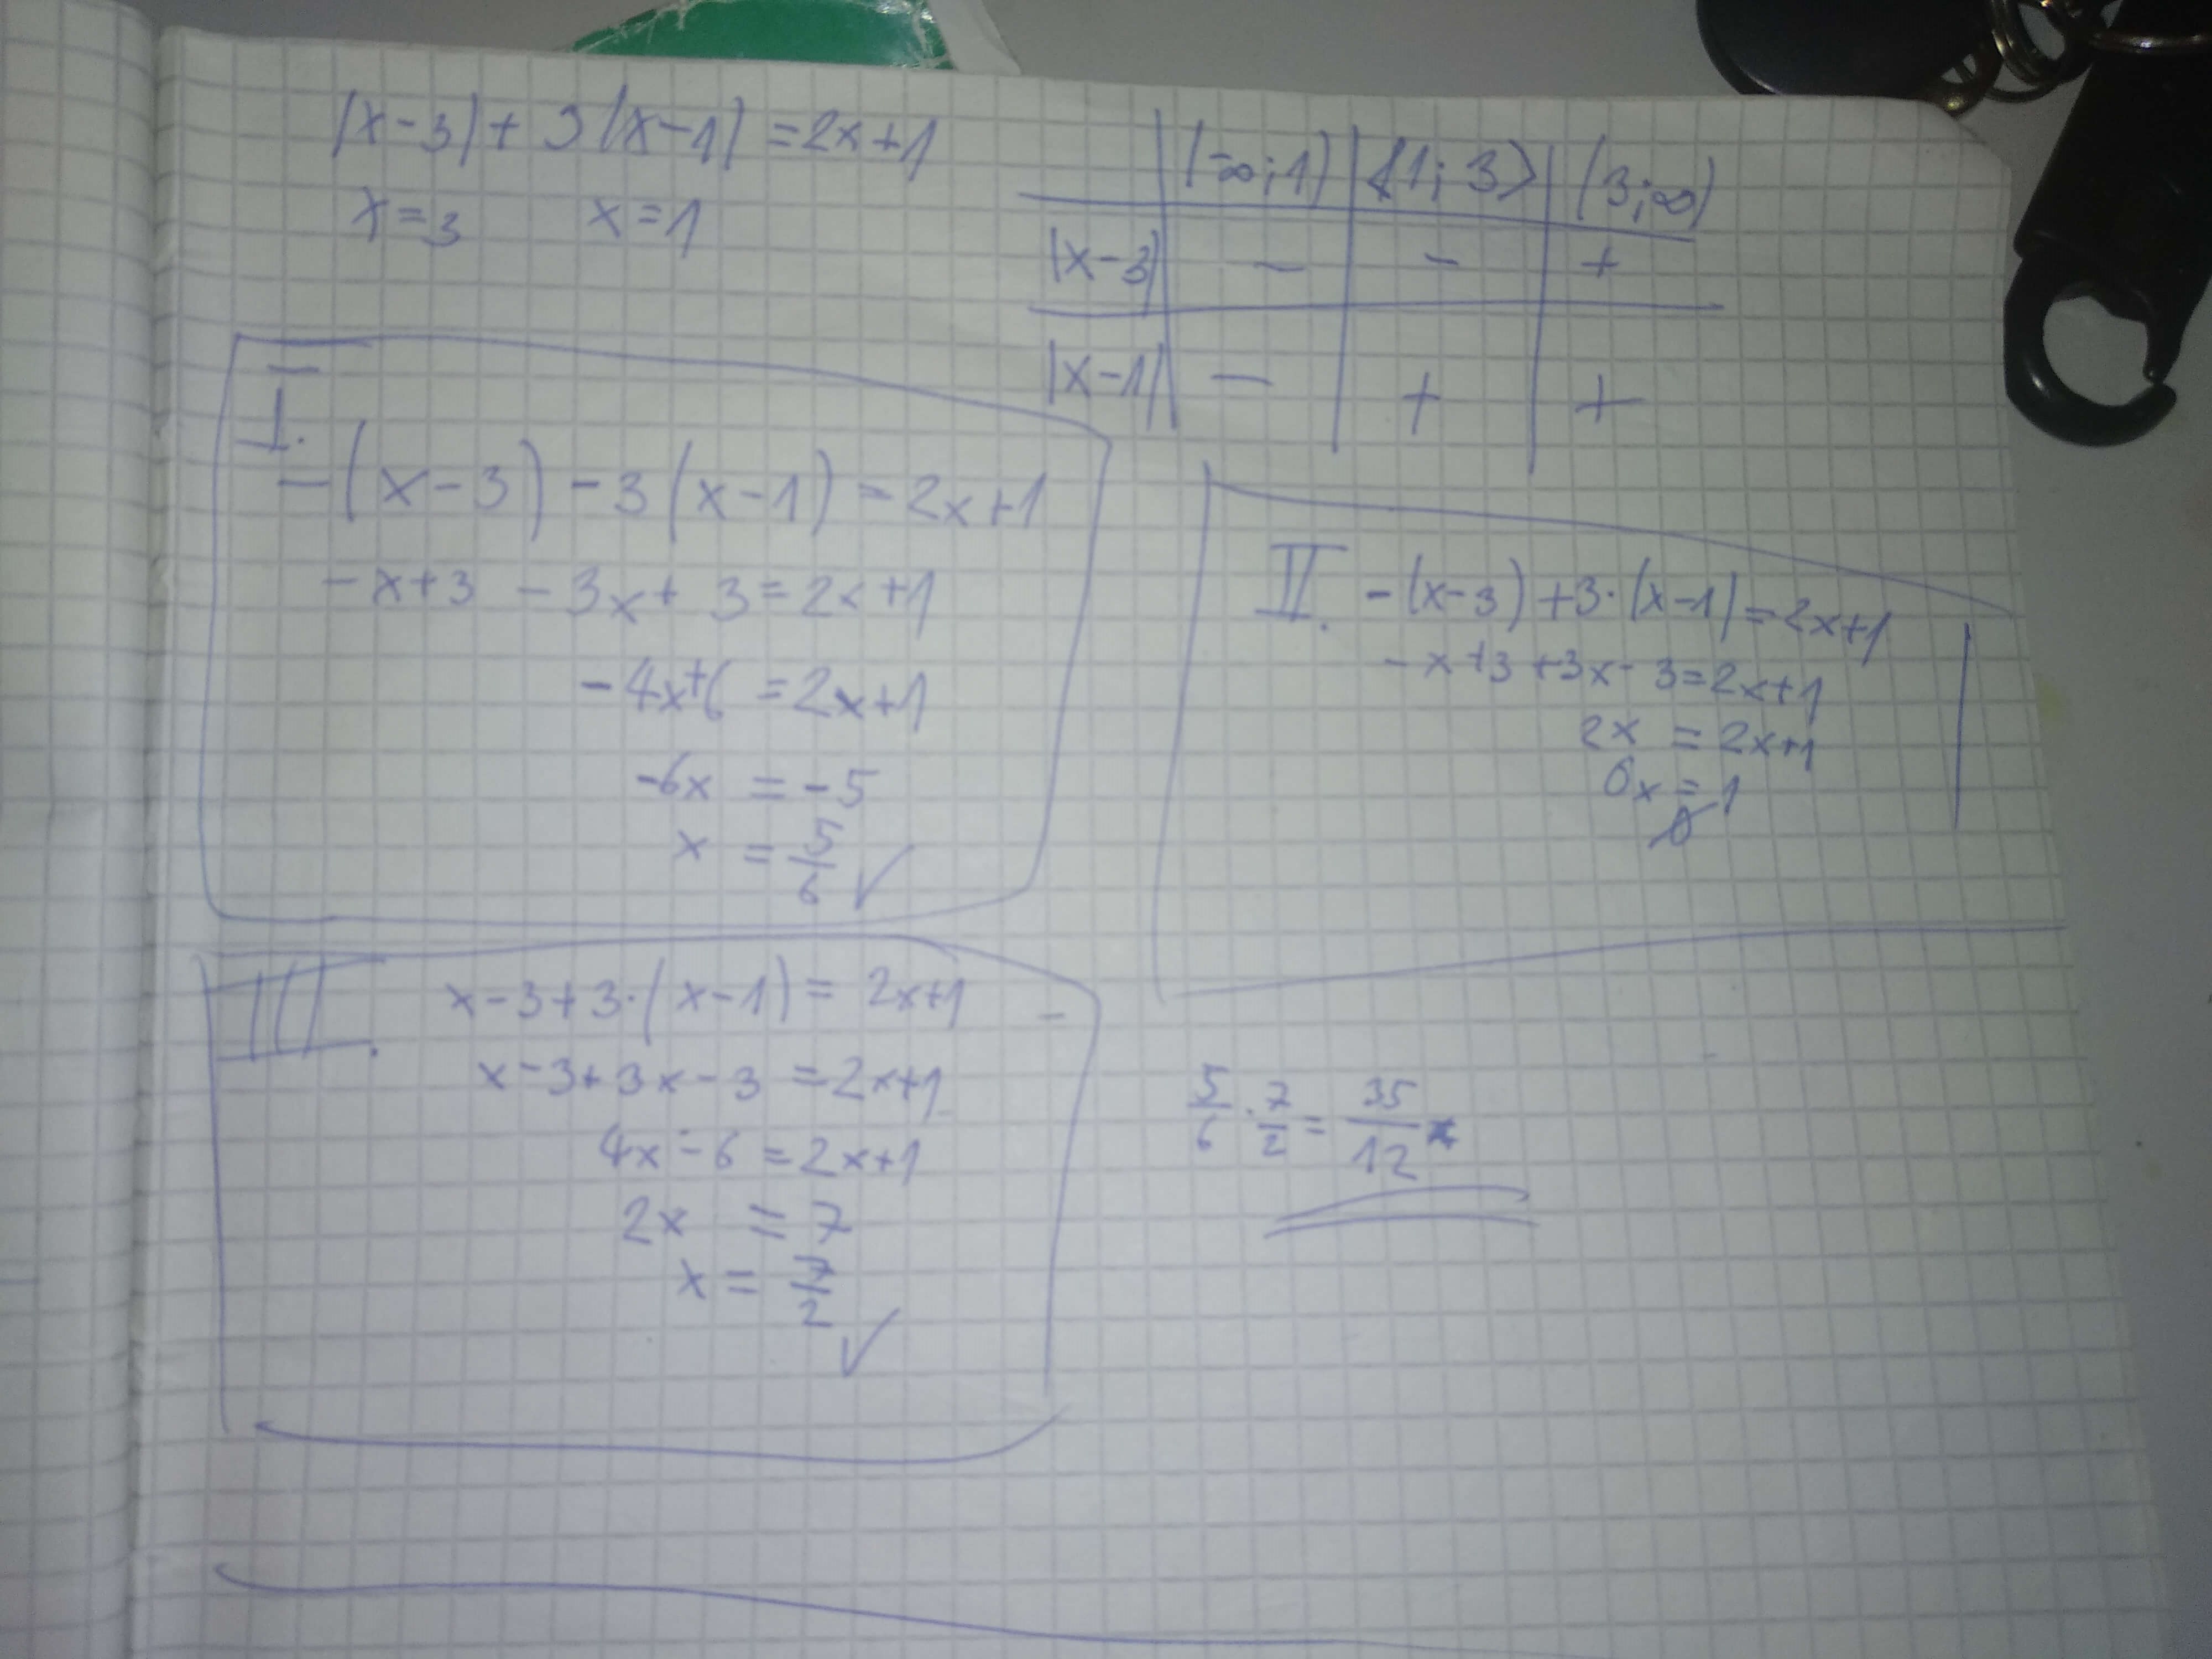 |x-3| + 3|x-1| = 2x+1
x=3 x=1
(-∞;1) | ⟨1;3⟩ | (3;∞)
|x-3| - | - | +
|x-1| - | + | +
I.
-(x-3) - 3(x-1) = 2x+1
-x+3 - 3x+3 = 2x+1
-4x+6 = 2x+1
-6x = -5
x = 5/6 ✓
II. -(x-3) + 3·(x-1) = 2x+1
-x+3+3x-3 = 2x+1
2x = 2x+1
0x = 1
∅
III. x-3+3·(x-1) = 2x+1
x-3+3x-3 = 2x+1
4x-6 = 2x+1
2x = 7
x = 7/2 ✓
5/6 · 7/2 = 35/12